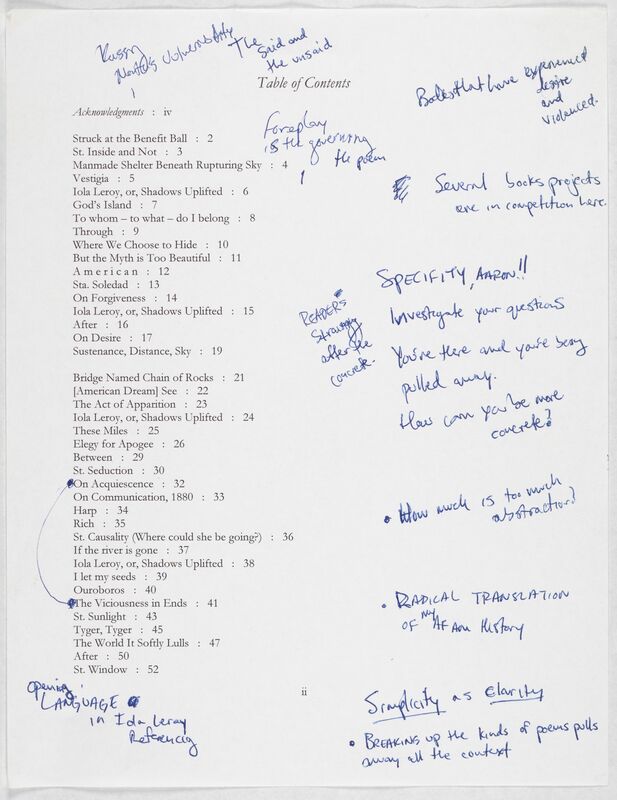 The
said and
the unsaid
Table of Contents
Bodies that have experienced
desire
and
violence.
Acknowledgments : iv
Foreplay
is the governing
the poem
Several books projects
are in competition here.
Struck at the Benefit Ball : 2
St. Inside and Not : 3
Manmade Shelter Beneath Rupturing Sky : 4
Vestigia : 5
Iola Leroy, or, Shadows Uplifted : 6
God's Island : 7
To whom – to what – do I belong : 8
Through : 9
Where We Choose to Hide : 10
But the Myth is Too Beautiful : 11
A m e r i c a n : 12
Sta. Soledad : 13
On Forgiveness : 14
Iola Leroy, or, Shadows Uplifted : 15
After : 16
On Desire : 17
Sustenance, Distance, Sky : 19
SPECIFITY, AARON!!
Investigate your questions
You're there and you're being
pulled away.
How can you be more
concrete?
READERS
after the
concrete.
Bridge Named Chain of Rocks : 21
[American Dream] See : 22
The Act of Apparition : 23
Iola Leroy, or, Shadows Uplifted : 24
These Miles : 25
Elegy for Apogee : 26
Between : 29
St. Seduction : 30
On Acquiescence : 32
On Communication, 1880 : 33
Harp : 34
Rich : 35
St. Causality (Where could she be going?) : 36
If the river is gone : 37
Iola Leroy, or, Shadows Uplifted : 38
I let my seeds : 39
Ouroboros : 40
The Viciousness in Ends : 41
St. Sunlight : 43
Tyger, Tyger : 45
The World It Softly Lulls : 47
After : 50
St. Window : 52
• How much is too much
abstraction?
• RADICAL TRANSLATION
OF my AFAM History
ii
opening
LANGUAGE
in Iola Leroy
Referencing
Simplicity as Clarity
• BREAKING up the kinds of poems pulls
away all the context